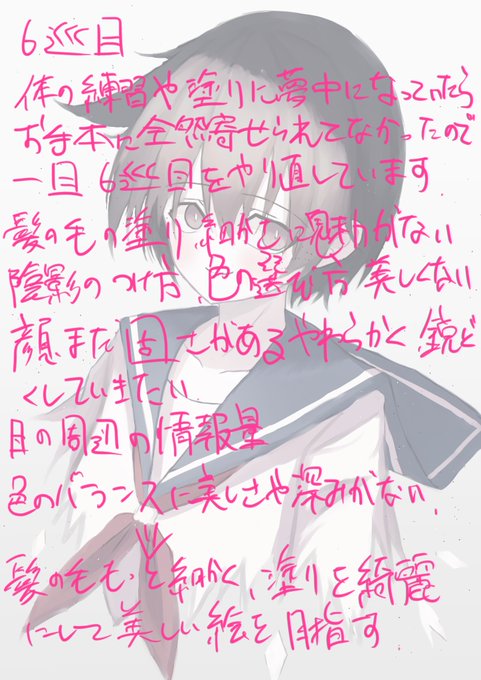 6巡目
体の練習や塗りに夢中になっていたら
お手本に全然寄せられてなかったので
一旦6巡目をやり直しています
髪の毛の塗り、細かさに魅力がない
陰影のつけ方、色の選び方、美しくない
顔まだ固さがあるやわらかく鋭ど
くしていきたい
目の周辺の情報量
色のバランスに美しさや深みがない
髪の毛もっと細かく、塗りを綺麗
にして美しい絵を目指す